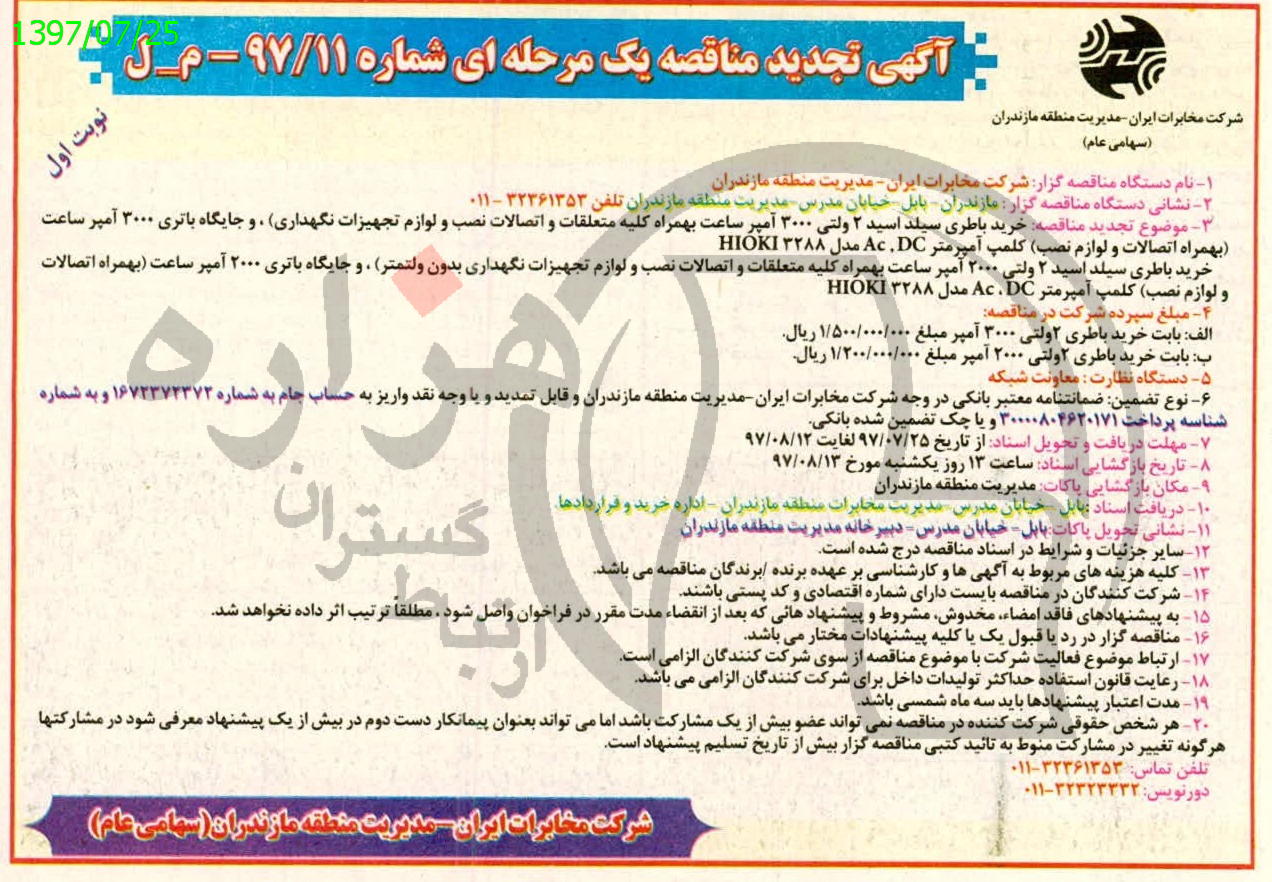 1397/07/25
آگهی تجدید مناقصه یک مرحله ای شماره ۹۷/۱۱ - م_ل
شرکت مخابرات ایران-مدیریت منطقه مازندران
(سهامی عام)
نوبت اول
۱- نام دستگاه مناقصه گزار: شرکت مخابرات ایران- مدیریت منطقه مازندران
۲- نشانی دستگاه مناقصه گزار : مازندران- بابل-خیابان مدرس-مدیریت منطقه مازندران تلفن ۳۲۳۶۱۳۵۳ -۰۱۱
۳- موضوع تجدید مناقصه: خرید باطری سیلد اسید ۲ ولتی ۳۰۰۰ آمپر ساعت بهمراه کلیه متعلقات و اتصالات نصب و لوازم تجهیزات نگهداری) ، و جایگاه باتری ۳۰۰۰ آمپر ساعت
(بهمراه اتصالات و لوازم نصب) کلمپ آمپرمتر Ac , DC مدل HIOKI ۳۲۸۸
خرید باطری سیلد اسید ۲ ولتی ۲۰۰۰ آمپر ساعت بهمراه کلیه متعلقات و اتصالات نصب و لوازم تجهیزات نگهداری بدون ولتمتر) ، و جایگاه باتری ۲۰۰۰ آمپر ساعت (بهمراه اتصالات
و لوازم نصب) کلمپ آمپرمتر Ac , DC مدل HIOKI ۳۲۸۸
۴- مبلغ سپرده شرکت در مناقصه:
الف: بابت خرید باطری ۲ولتی ۳۰۰۰ آمپر مبلغ ۱/۵۰۰/۰۰۰/۰۰۰ ریال.
ب: بابت خرید باطری ۲ولتی ۲۰۰۰ آمپر مبلغ ۱/۲۰۰/۰۰۰/۰۰۰ ریال.
۵- دستگاه نظارت : معاونت شبکه
۶- نوع تضمین: ضمانتنامه معتبر بانکی در وجه شرکت مخابرات ایران-مدیریت منطقه مازندران و قابل تمدید و یا وجه نقد واریز به حساب جام به شماره ۱۶۷۲۳۷۲۳۷۲ و به شماره
شناسه پرداخت ۳۰۰۰۰۸۰۴۶۲۰۱۷۱ و یا چک تضمین شده بانکی.
۷- مهلت دریافت و تحویل اسناد: از تاریخ ۹۷/۰۷/۲۵ لغایت ۹۷/۰۸/۱۲
۸- تاریخ بازگشایی اسناد: ساعت ۱۳ روز یکشنبه مورخ ۹۷/۰۸/۱۳
۹- مکان بازگشایی پاکات: مدیریت منطقه مازندران
۱۰- دریافت اسناد :بابل-خیابان مدرس-مدیریت مخابرات منطقه مازندران -اداره خرید و قراردادها.
۱۱- نشانی تحویل پاکات:بابل- خیابان مدرس- دبیرخانه مدیریت منطقه مازندران
۱۲-سایر جزئیات و شرایط در اسناد مناقصه درج شده است.
۱۳- کلیه هزینه های مربوط به آگهی ها و کارشناسی بر عهده برنده /برندگان مناقصه می باشد.
۱۴- شرکت کنندگان در مناقصه بایست دارای شماره اقتصادی و کد پستی باشند.
۱۵- به پیشنهادهای فاقد امضاء، مخدوش، مشروط و پیشنهاد هائی که بعد از انقضاء مدت مقرر در فراخوان واصل شود ، مطلقاً ترتیب اثر داده نخواهد شد.
۱۶- مناقصه گزار در رد یا قبول یک یا کلیه پیشنهادات مختار می باشد.
۱۷- ارتباط موضوع فعالیت شرکت با موضوع مناقصه از سوی شرکت کنندگان الزامی است.
۱۸- رعایت قانون استفاده حداکثر تولیدات داخل برای شرکت کنندگان الزامی می باشد.
۱۹- مدت اعتبار پیشنهادها باید سه ماه شمسی باشد.
۲۰- هر شخص حقوقی شرکت کننده در مناقصه نمی تواند عضو بیش از یک مشارکت باشد اما می تواند بعنوان پیمانکار دست دوم در بیش از یک پیشنهاد معرفی شود در مشارکتها
هرگونه تغییر در مشارکت منوط به تائید کتبی مناقصه گزار بیش از تاریخ تسلیم پیشنهاد است.
تلفن تماس: ۳۲۳۶۱۳۵۳-۰۱۱
دورنویس: ۳۲۳۲۳۳۳۲-۰۱۱
شرکت مخابرات ایران-مدیریت منطقه مازندران(سهامی عام)
هزاره
گستران
ارتباط